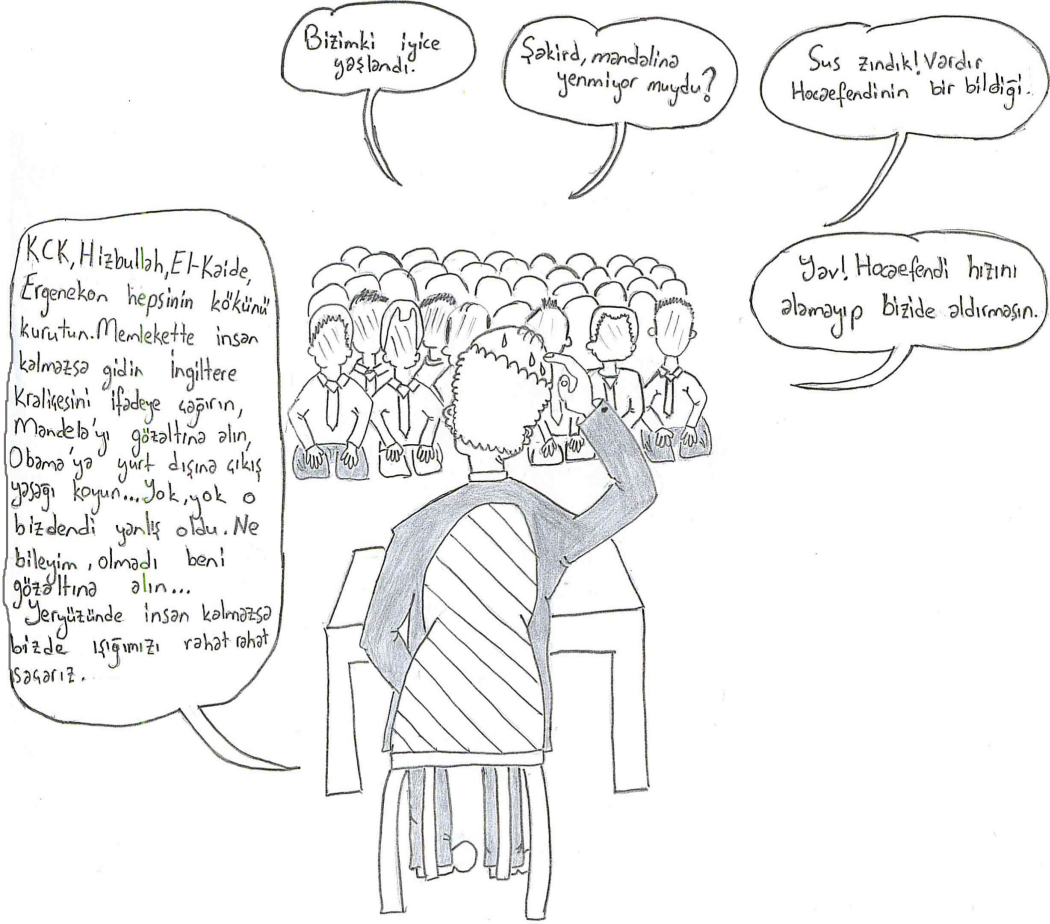 Bizimki iyice
yaşlandı.
Şakird, mandalina
yenmiyor muydu?
Sus zındık! Vardır
Hocaefendinin bir bildiği.
Yav! Hocaefendi hızını
alamayıp bizide aldırmasın.
KCK, Hizbullah, El-Kaide,
Ergenekon hepsinin kökünü
kurutun. Memlekette insan
kalmazsa gidin İngiltere
kraliçesini ifadeye çağırın,
Mandela'yı gözaltına alın,
Obama'ya yurt dışına çıkış
yasağı koyun... Yok, yok o
bizdendi yanlış oldu. Ne
bileyim, olmadı beni
gözaltına alın...
Yeryüzünde insan kalmazsa
bizde ışığımızı rahat rahat
saçarız.